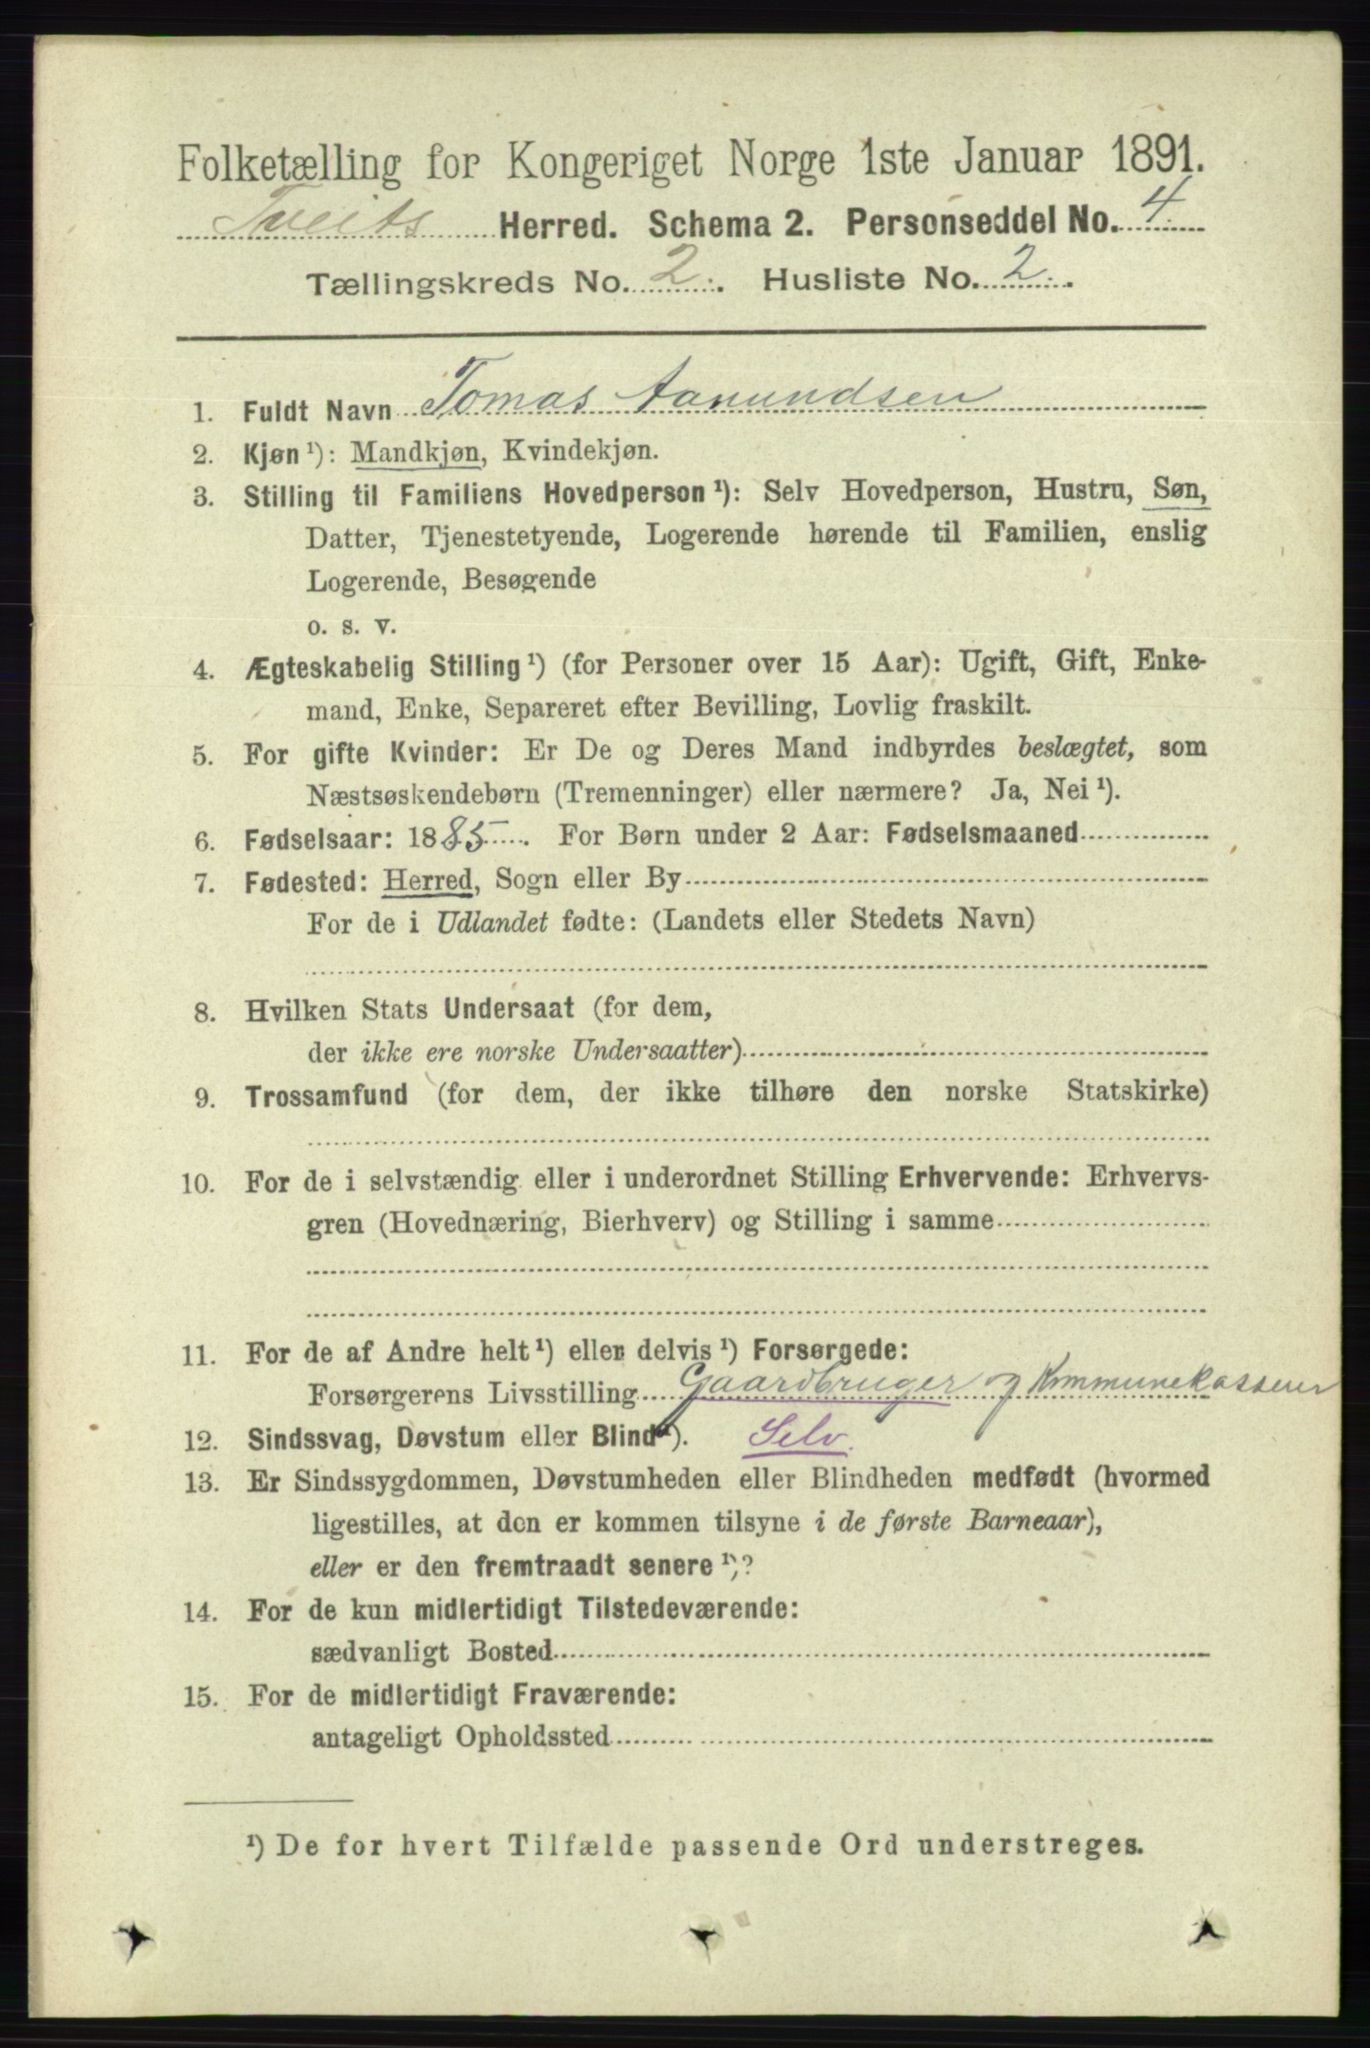 Folketælling for Kongeriget Norge 1ste Januar 1891.
Tveits Herred. Schema 2. Personseddel No. 4.
Tællingskreds No. 2. Husliste No. 2.
1. Fuldt Navn Tomas Aanundsen
2. Kjøn ¹): Mandkjøn, Kvindekjøn.
3. Stilling til Familiens Hovedperson ¹): Selv Hovedperson, Hustru, Søn,
Datter, Tjenestetyende, Logerende hørende til Familien, enslig
Logerende, Besøgende
o. s. v.
4. Ægteskabelig Stilling ¹) (for Personer over 15 Aar): Ugift, Gift, Enke-
mand, Enke, Separeret efter Bevilling, Lovlig fraskilt.
5. For gifte Kvinder: Er De og Deres Mand indbyrdes beslægtet, som
Næstsøskendebørn (Tremenninger) eller nærmere? Ja, Nei ¹).
6. Fødselsaar: 1885. For Børn under 2 Aar: Fødselsmaaned
7. Fødested: Herred, Sogn eller By
For de i Udlandet fødte: (Landets eller Stedets Navn)
8. Hvilken Stats Undersaat (for dem,
der ikke ere norske Undersaatter)
9. Trossamfund (for dem, der ikke tilhøre den norske Statskirke)
10. For de i selvstændig eller i underordnet Stilling Erhvervende: Erhvervs-
gren (Hovednæring, Bierhverv) og Stilling i samme
11. For de af Andre helt ¹) eller delvis ¹) Forsørgede:
Forsørgerens Livsstilling Gaardbruger og Kommunekasserer
12. Sindssvag, Døvstum eller Blind ¹). Selv.
13. Er Sindssygdommen, Døvstumheden eller Blindheden medfødt (hvormed
ligestilles, at den er kommen tilsyne i de første Barneaar),
eller er den fremtraadt senere ¹)?
14. For de kun midlertidigt Tilstedeværende:
sædvanligt Bosted
15. For de midlertidigt Fraværende:
antageligt Opholdssted
¹) De for hvert Tilfælde passende Ord understreges.